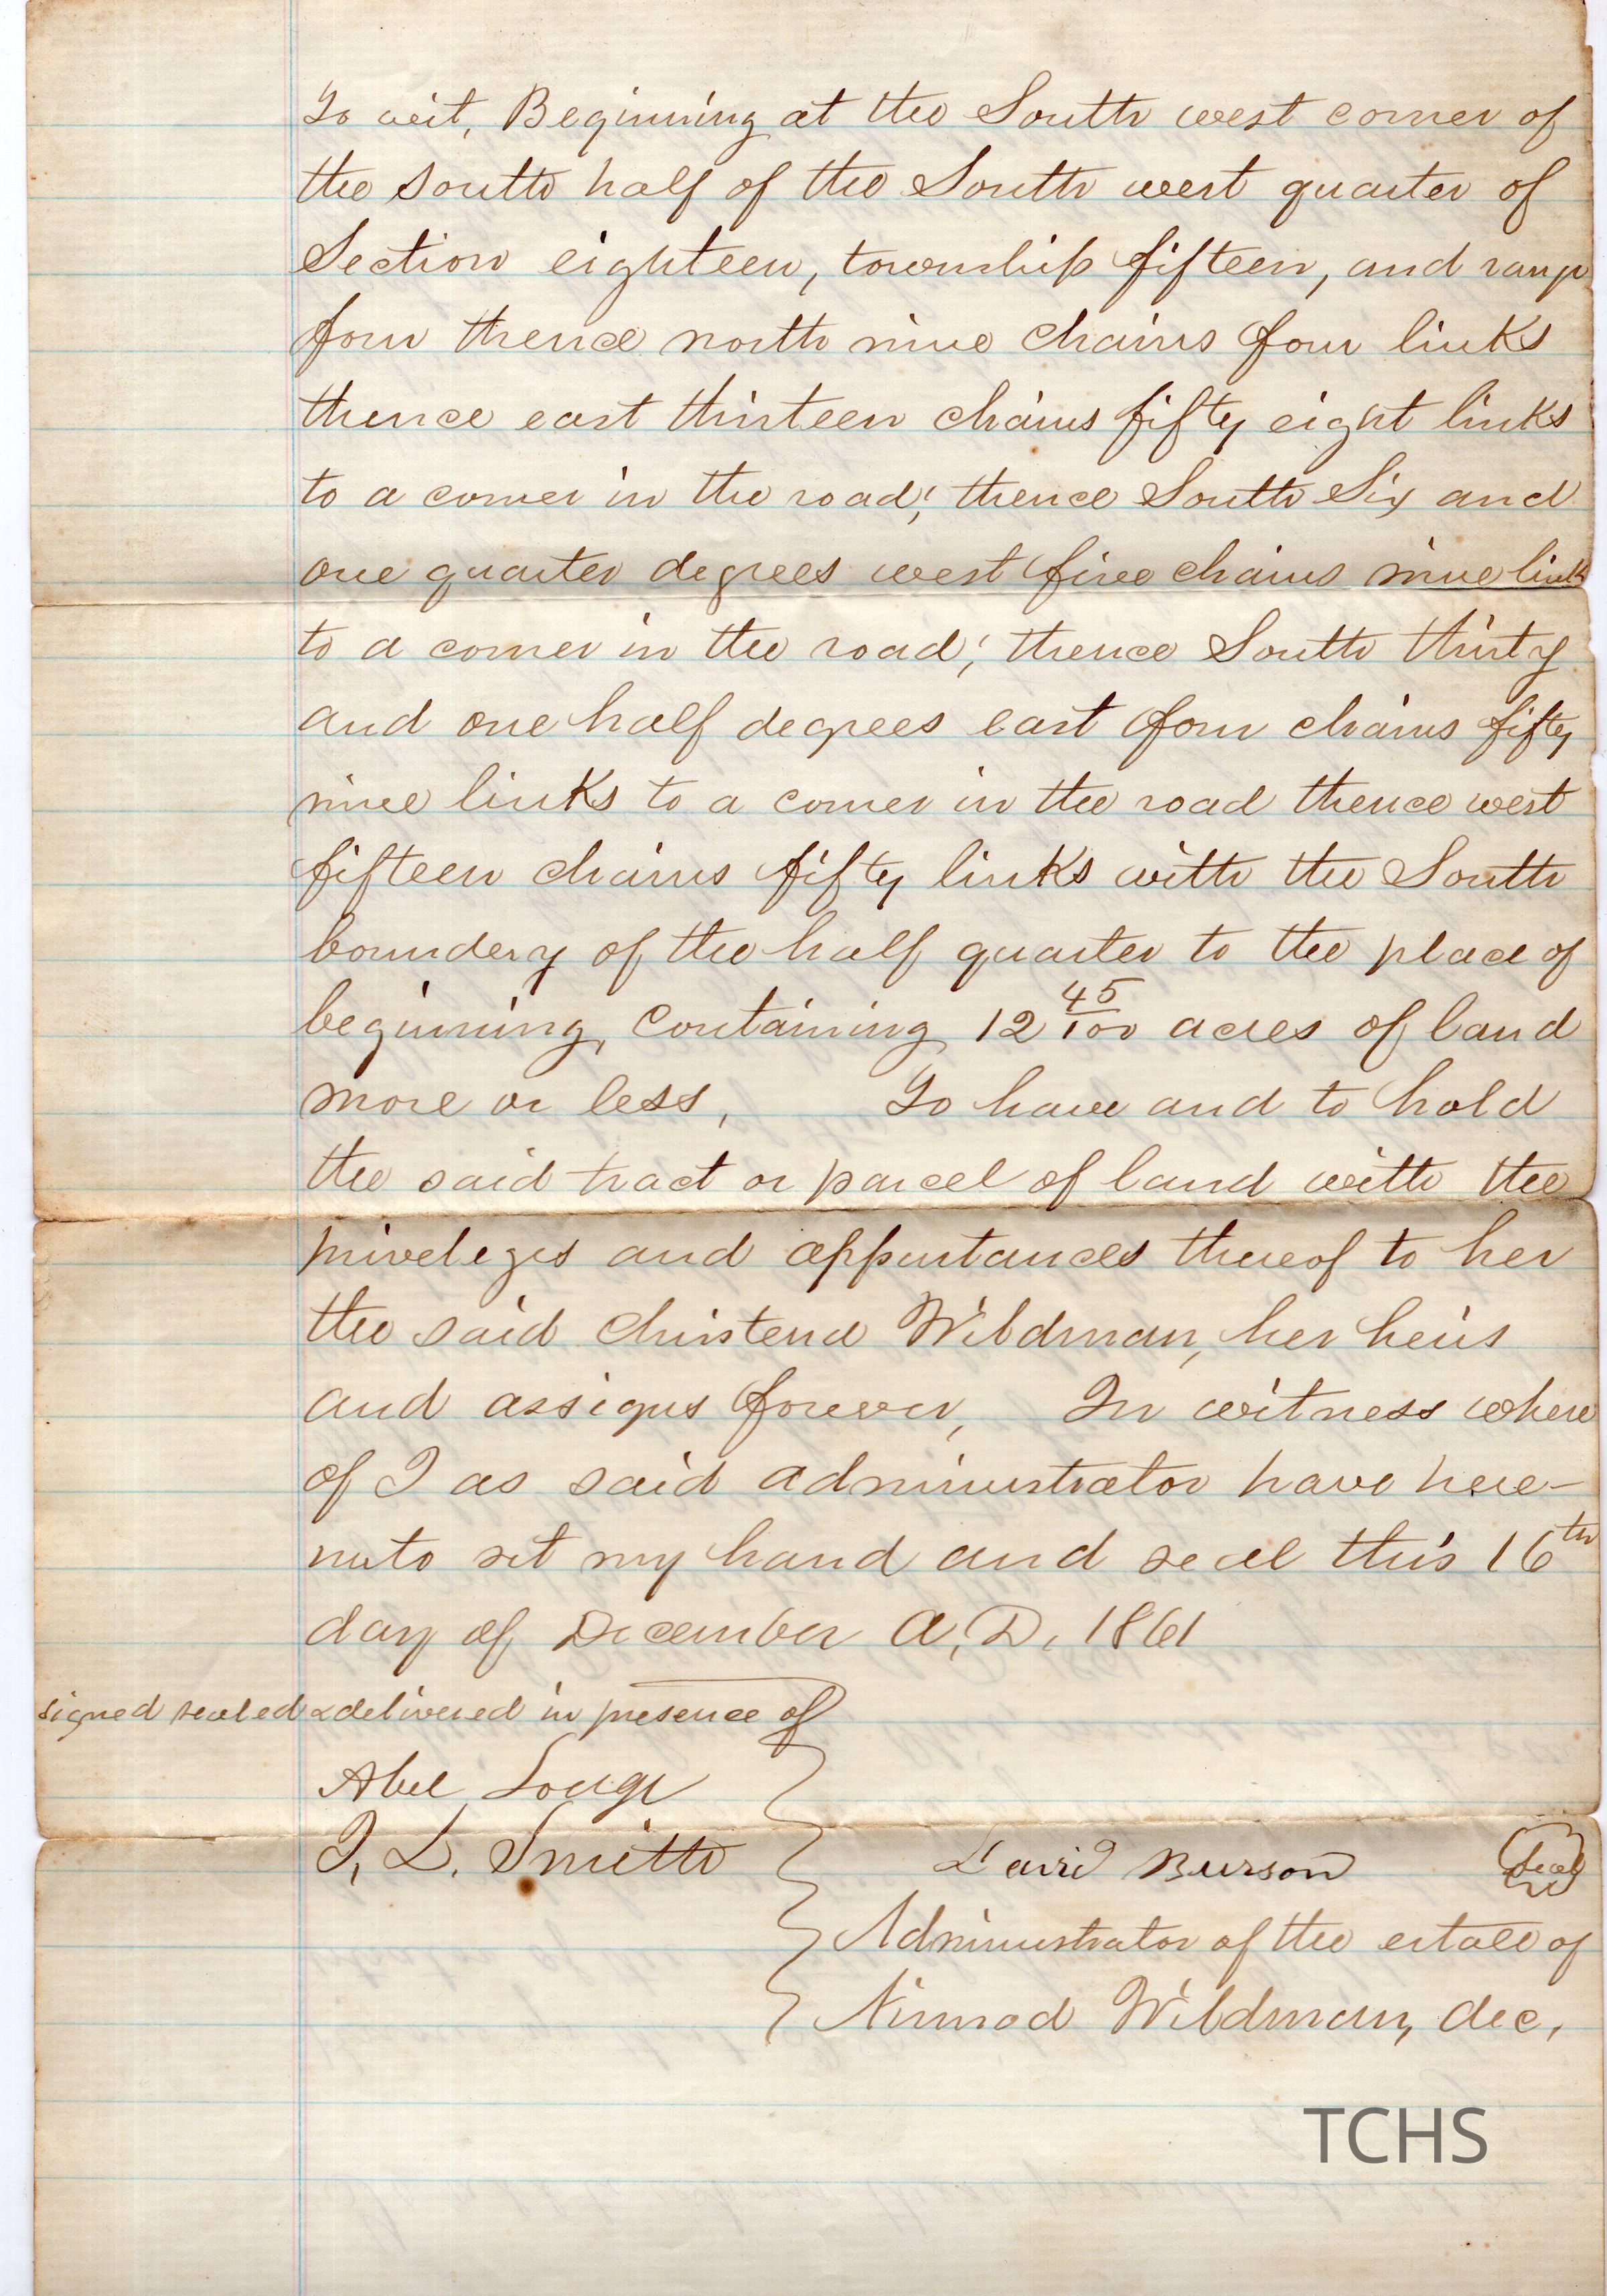 To wit, Beginning at the South west corner of
the south half of the South west quarter of
Section eighteen, township fifteen, and range
four thence north nine chains four links
thence east thirteen chains fifty eight links
to a corner in the road; thence South Six and
one quarter degrees west five chains nine links
to a corner in the road; thence South thirty
and one half degrees east four chains fifty
nine links to a corner in the road thence west
fifteen chains fifty links with the South
boundery of the half quarter to the place of
beginning, containing 12 45/100 acres of land
more or less, To have and to hold
the said tract or parcel of land with the
priveleges and appurtances thereof to her
the said Christena Wildman, her heirs
and assigns forever, In witness where
of I as said administrator have here-
unto set my hand and seal this 16th
day of December A.D. 1861
signed sealed & delivered in presence of
Abel Lough
J. L. Smith
David Burson Seal
Administrator of the estate of
Nimrod Wildman, dec,
TCHS